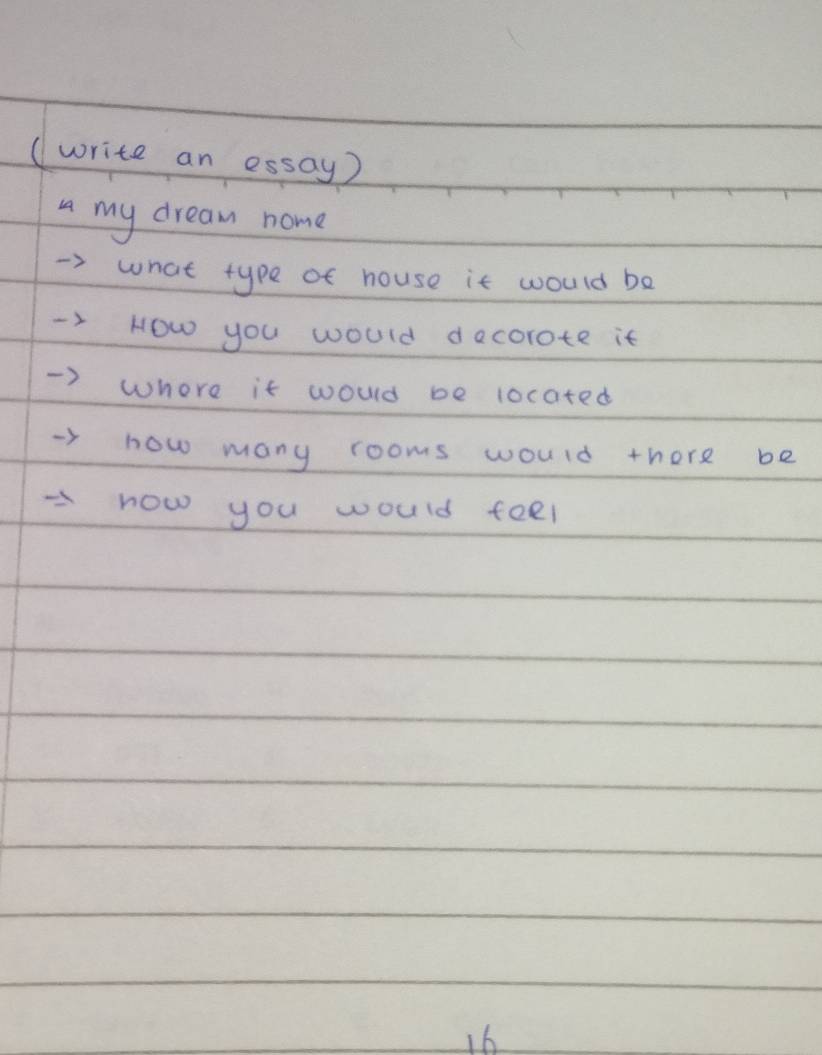 (write an essay)
" my dream home
-> what type of house it would be
-> How you would decorote it
-> where it would be located
-> how many rooms would there be
-> how you would feel
16